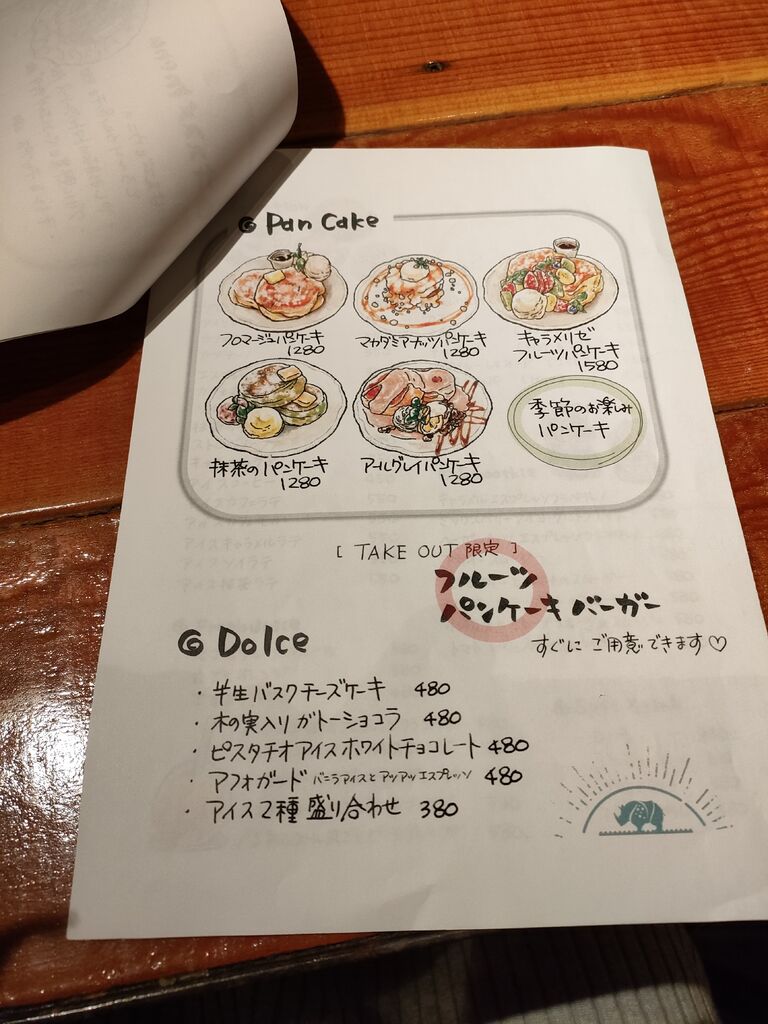 Pan Cake
フロマージュパンケーキ
1280
マカダミアナッツパンケーキ
1280
キャラメリゼ
フルーツパンケーキ
1580
抹茶のパンケーキ
1280
アールグレイパンケーキ
1280
季節のお楽しみ
パンケーキ
[ TAKE OUT 限定 ]
フルーツ
パンケーキ バーガー
すぐに ご用意できます♡
Dolce
・半生バスクチーズケーキ 480
・木の実入り ガトーショコラ 480
・ピスタチオアイスホワイトチョコレート 480
・アフォガード バニラアイスとアツアツエスプレッソ 480
・アイス2種 盛り合わせ 380